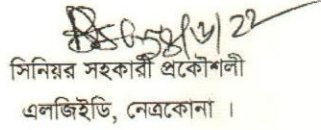 সিনিয়র সহকারী প্রকৌশলী
এলজিইডি, নেত্রকোনা ।